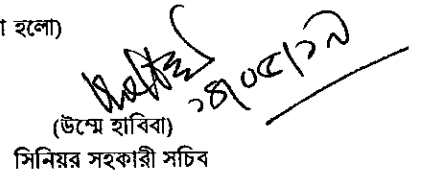 া হলো)
১৪/০৫/১৯
(উম্মে হাবিবা)
সিনিয়র সহকারী সচিব